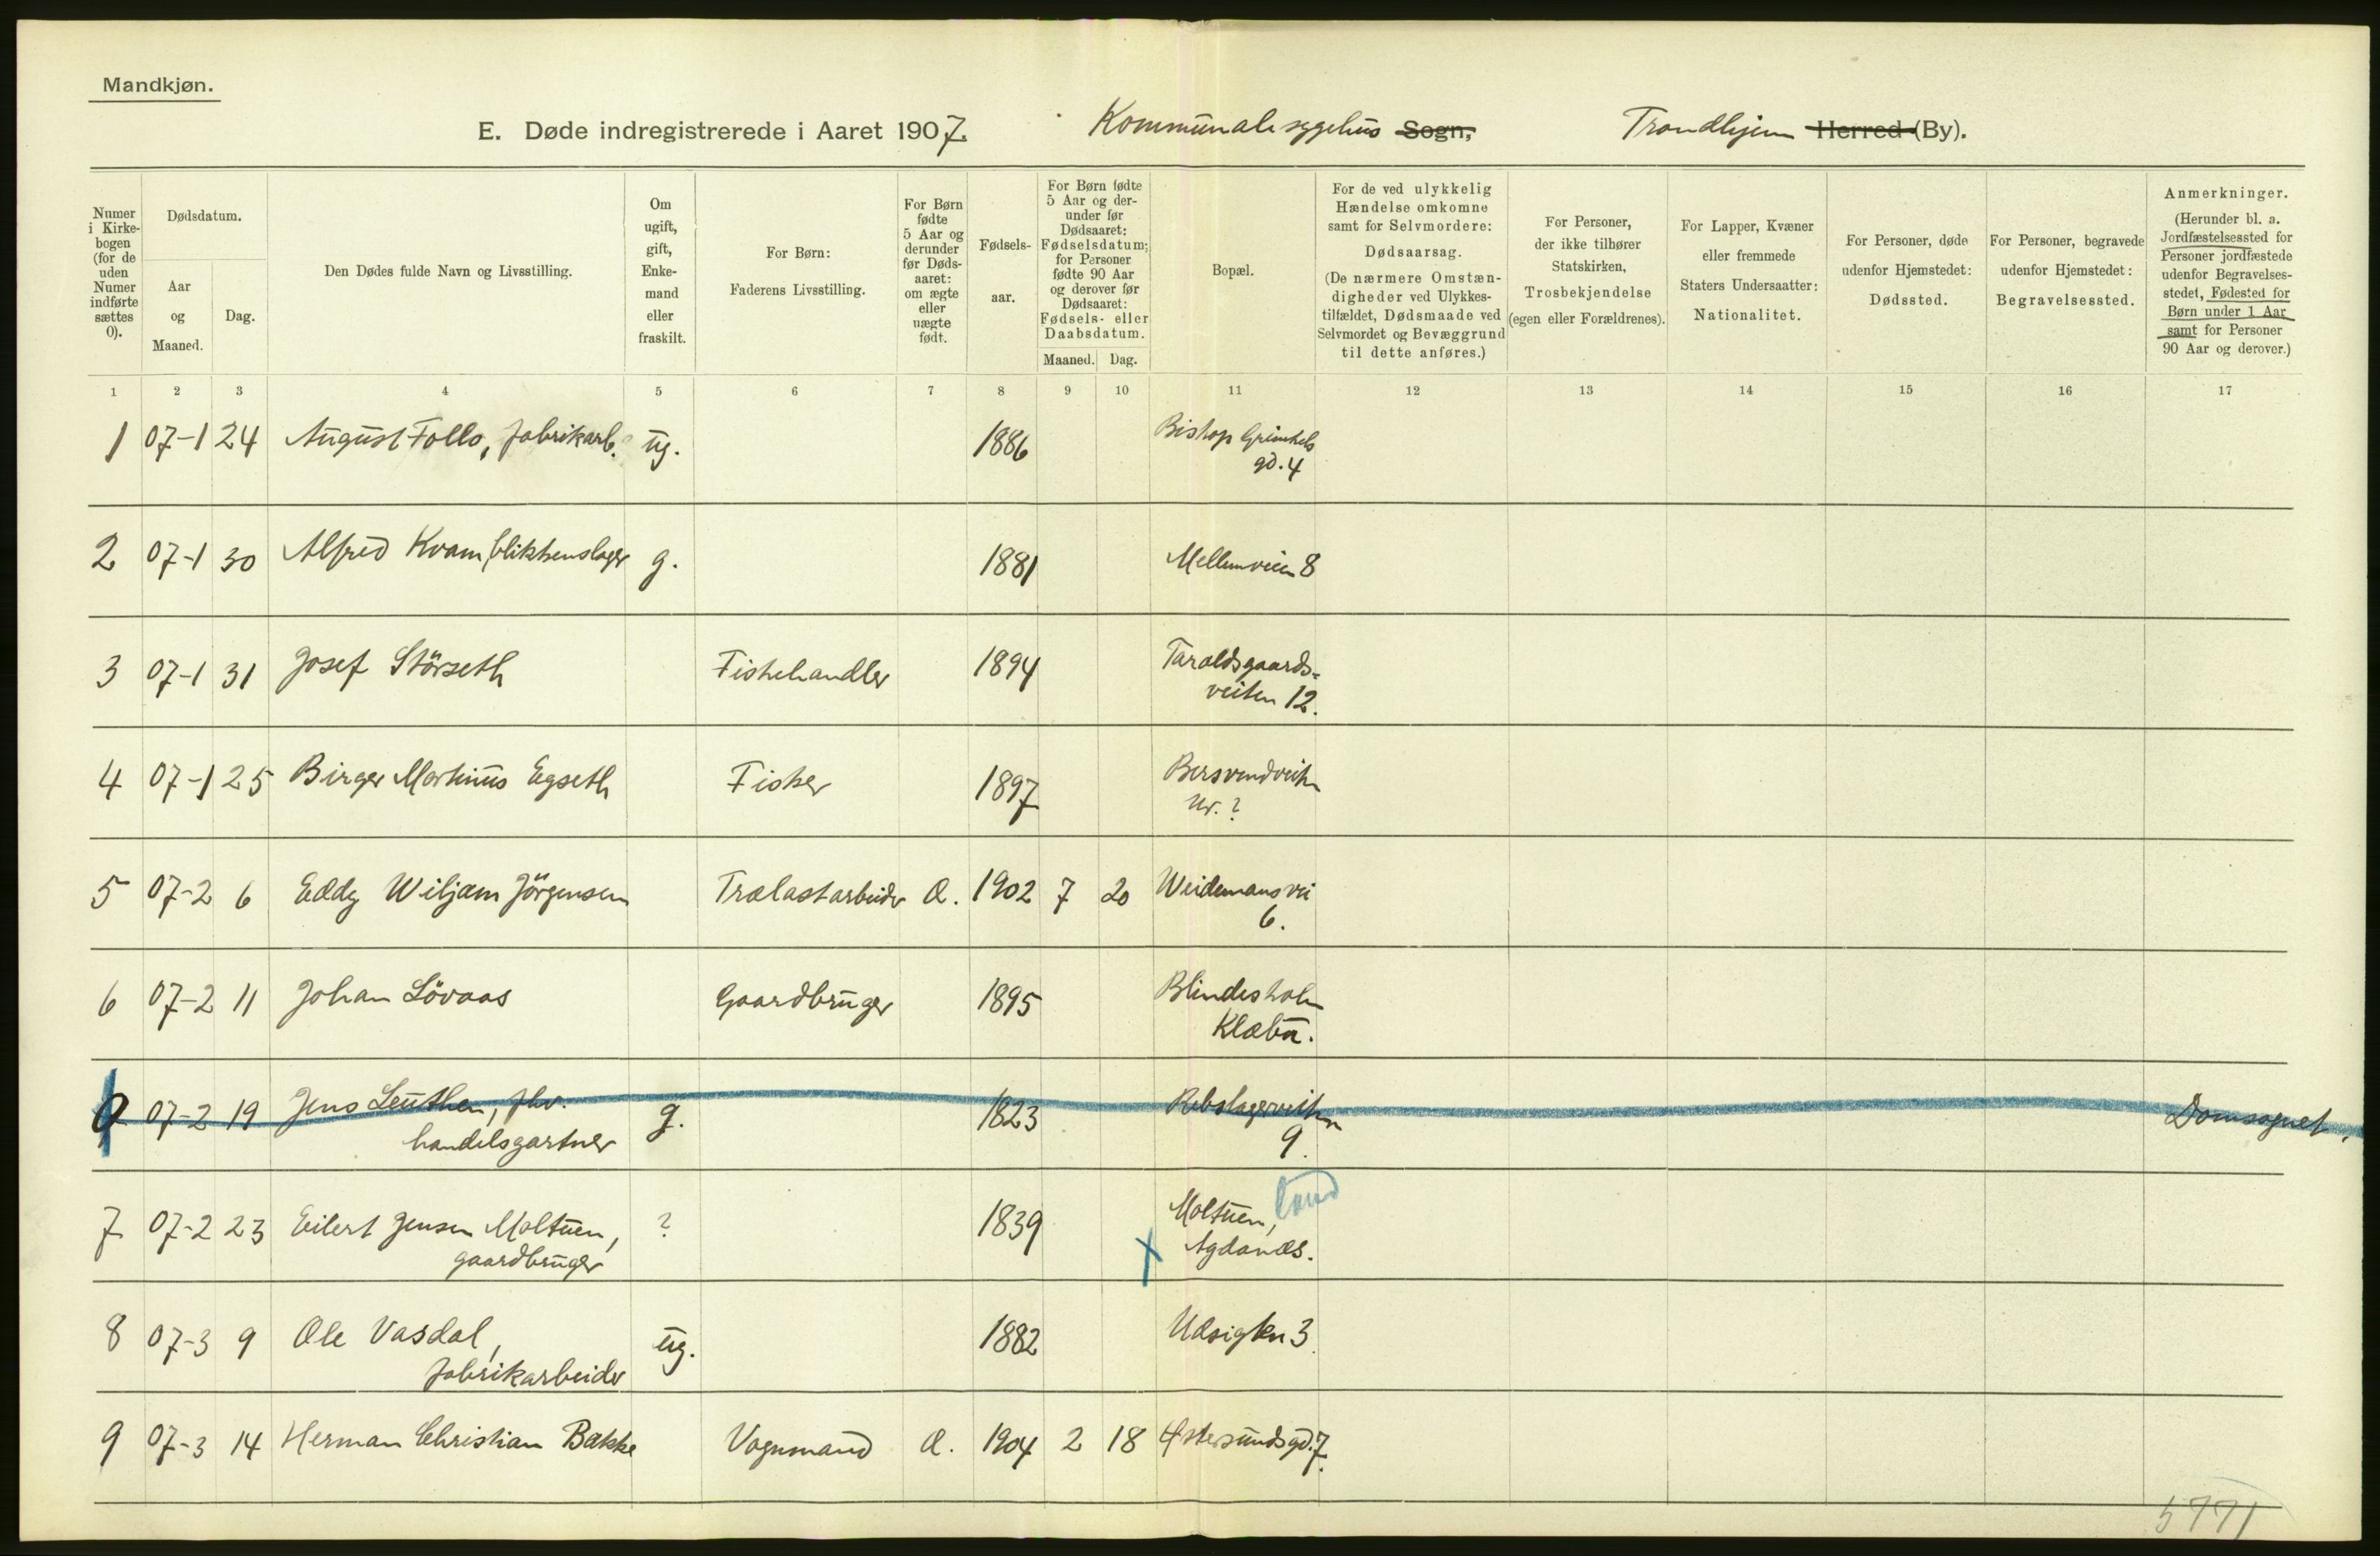 Mandkjøn.
E. Døde indregistrerede i Aaret 1907. Kommunale sygehus Sogn, Trondhjem Herred (By).
Numer i Kirkebogen (for de uden Numer indførte sættes 0).
Dødsdatum.
Aar og Maaned.
Dag.
Den Dødes fulde Navn og Livsstilling.
Om ugift, gift, Enkemand eller fraskilt.
For Børn: Faderens Livsstilling.
For Børn fødte 5 Aar og derunder før Dødsaaret: om ægte eller uægte født.
Fødselsaar.
For Børn fødte 5 Aar og derunder før Dødsaaret: Fødselsdatum; for Personer fødte 90 Aar og derover før Dødsaaret: Fødsels- eller Daabsdatum.
Maaned. Dag.
Bopæl.
For de ved ulykkelig Hændelse omkomne samt for Selvmordere: Dødsaarsag. (De nærmere Omstændigheder ved Ulykkestilfældet, Dødsmaade ved Selvmordet og Bevæggrund til dette anføres.)
For Personer, der ikke tilhører Statskirken, Trosbekjendelse (egen eller Forældrenes).
For Lapper, Kvæner eller fremmede Staters Undersaatter: Nationalitet.
For Personer, døde udenfor Hjemstedet: Dødssted.
For Personer, begravede udenfor Hjemstedet: Begravelsessted.
Anmerkninger. (Herunder bl. a. Jordfæstelsessted for Personer jordfæstede udenfor Begravelsesstedet, Fødested for Børn under 1 Aar samt for Personer 90 Aar og derover.)
1 2 3 4 5 6 7 8 9 10 11 12 13 14 15 16 17
1 07-1 24 August Follo, fabrikarb. ug. 1886 Bishop Grimkels
gd. 4
2 07-1 30 Alfred Kvam, blikkenslager g. 1881 Mellemveien 8
3 07-1 31 Josef Störseth Fiskehandler 1894 Taraldsgaards-
veiten 12.
4 07-1 25 Birger Martinus Egseth Fisker 1897 Bersvendveiten
Nr. ?
5 07-2 6 Eddy Wiljam Jörgensen Trælastarbeider Æ. 1902 7 20 Weidemansvei
6.
6 07-2 11 Johan Lövaas Gaardbruger 1895
Klæbu.
0 07-2 19 Jens Leuthen, fhv. g. 1823 Rebslagerveiten Domsognet.
handelsgartner 9.
7 07-2 23 Eilert Jensen Moltuen, ? 1839 Moltuen, land
gaardbruger x Agdanes.
8 07-3 9 Ole Vasdal, ug. 1882 Udsigten 3.
fabrikarbeider
9 07-3 14 Herman Christian Bakke Vognmand Æ. 1904 2 18 Østersundsgd. 7.
5771